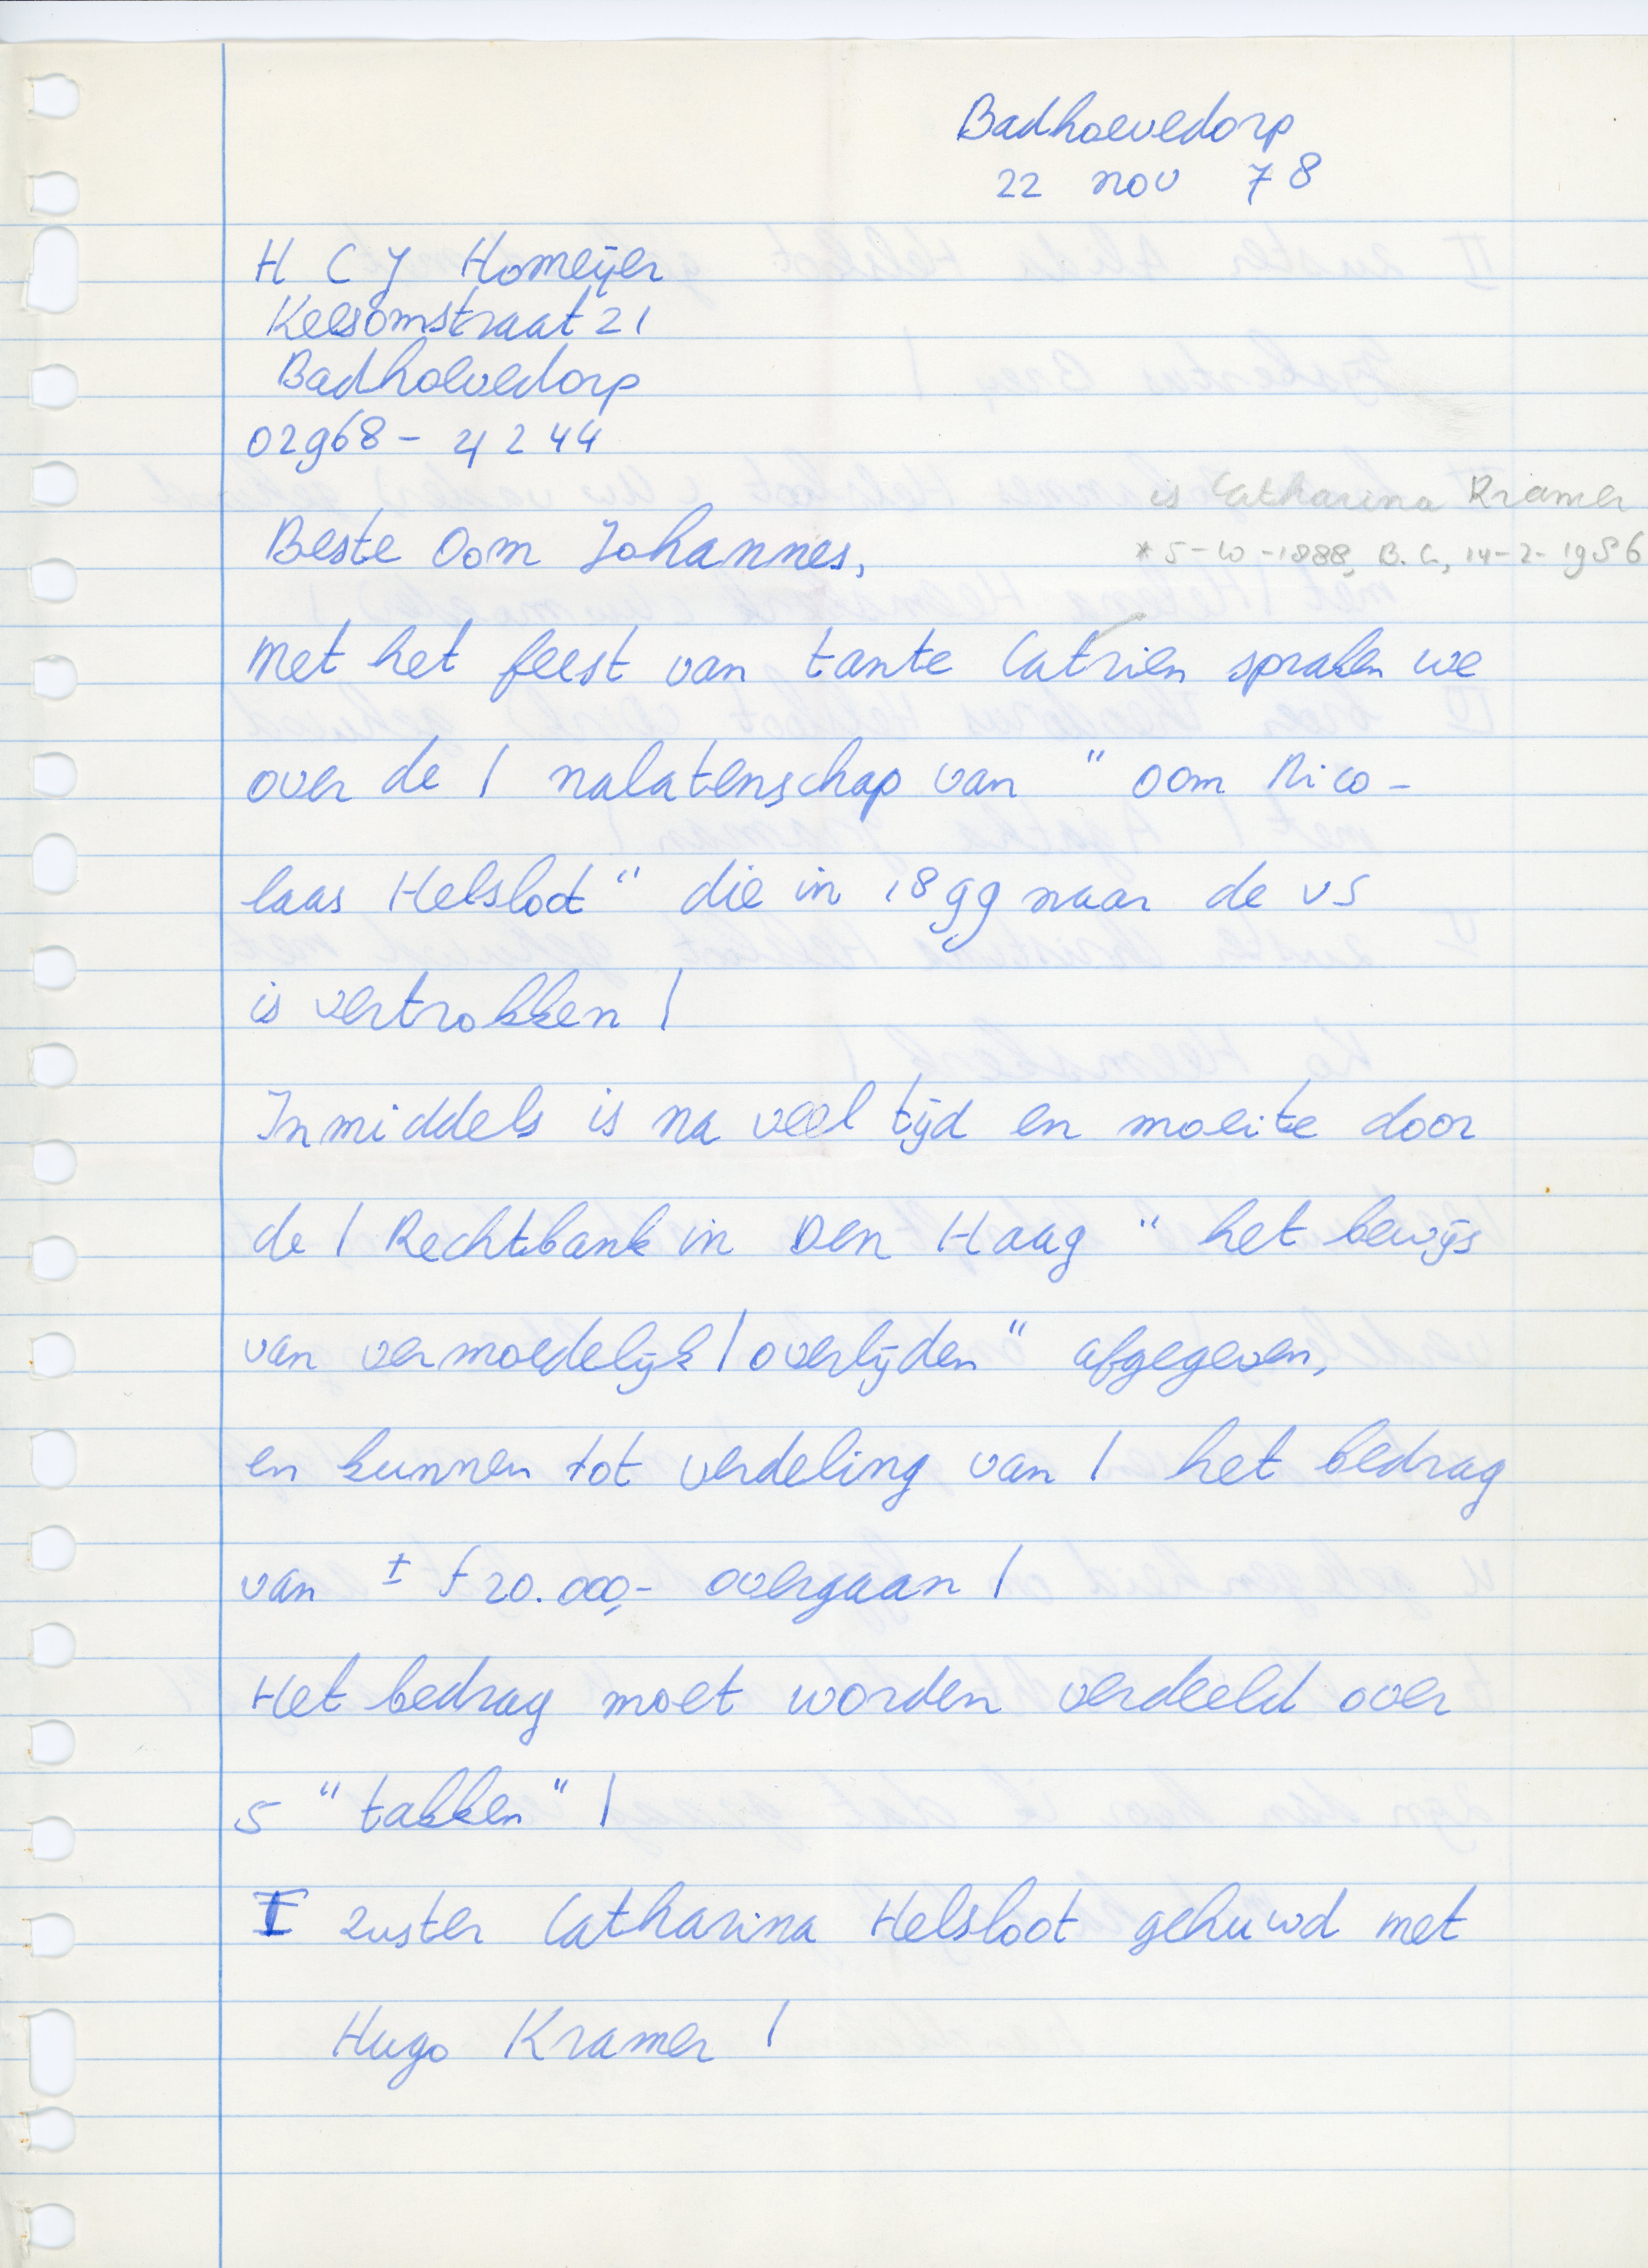 Badhoevedorp
22 nov 78
H C J Homeijer
Keesomstraat 21
Badhoevedorp
02968 - 4244
is Catharina Kramer
* 5-10-1888, B.C., 14-2-1986
Beste Oom Johannes,
Met het feest van tante Catrien spraken we
over de / nalatenschap van " oom Nico-
laas Helsloot " die in 1899 naar de VS
is vertrokken /
Inmiddels is na veel tijd en moeite door
de / Rechtbank in Den Haag " het bewijs
van vermoedelijk / overlijden " afgegeven,
en kunnen tot verdeling van / het bedrag
van ± f 20.000,- overgaan /
Het bedrag moet worden verdeeld over
5 " takken " /
I zuster Catharina Helsloot gehuwd met
Hugo Kramer /